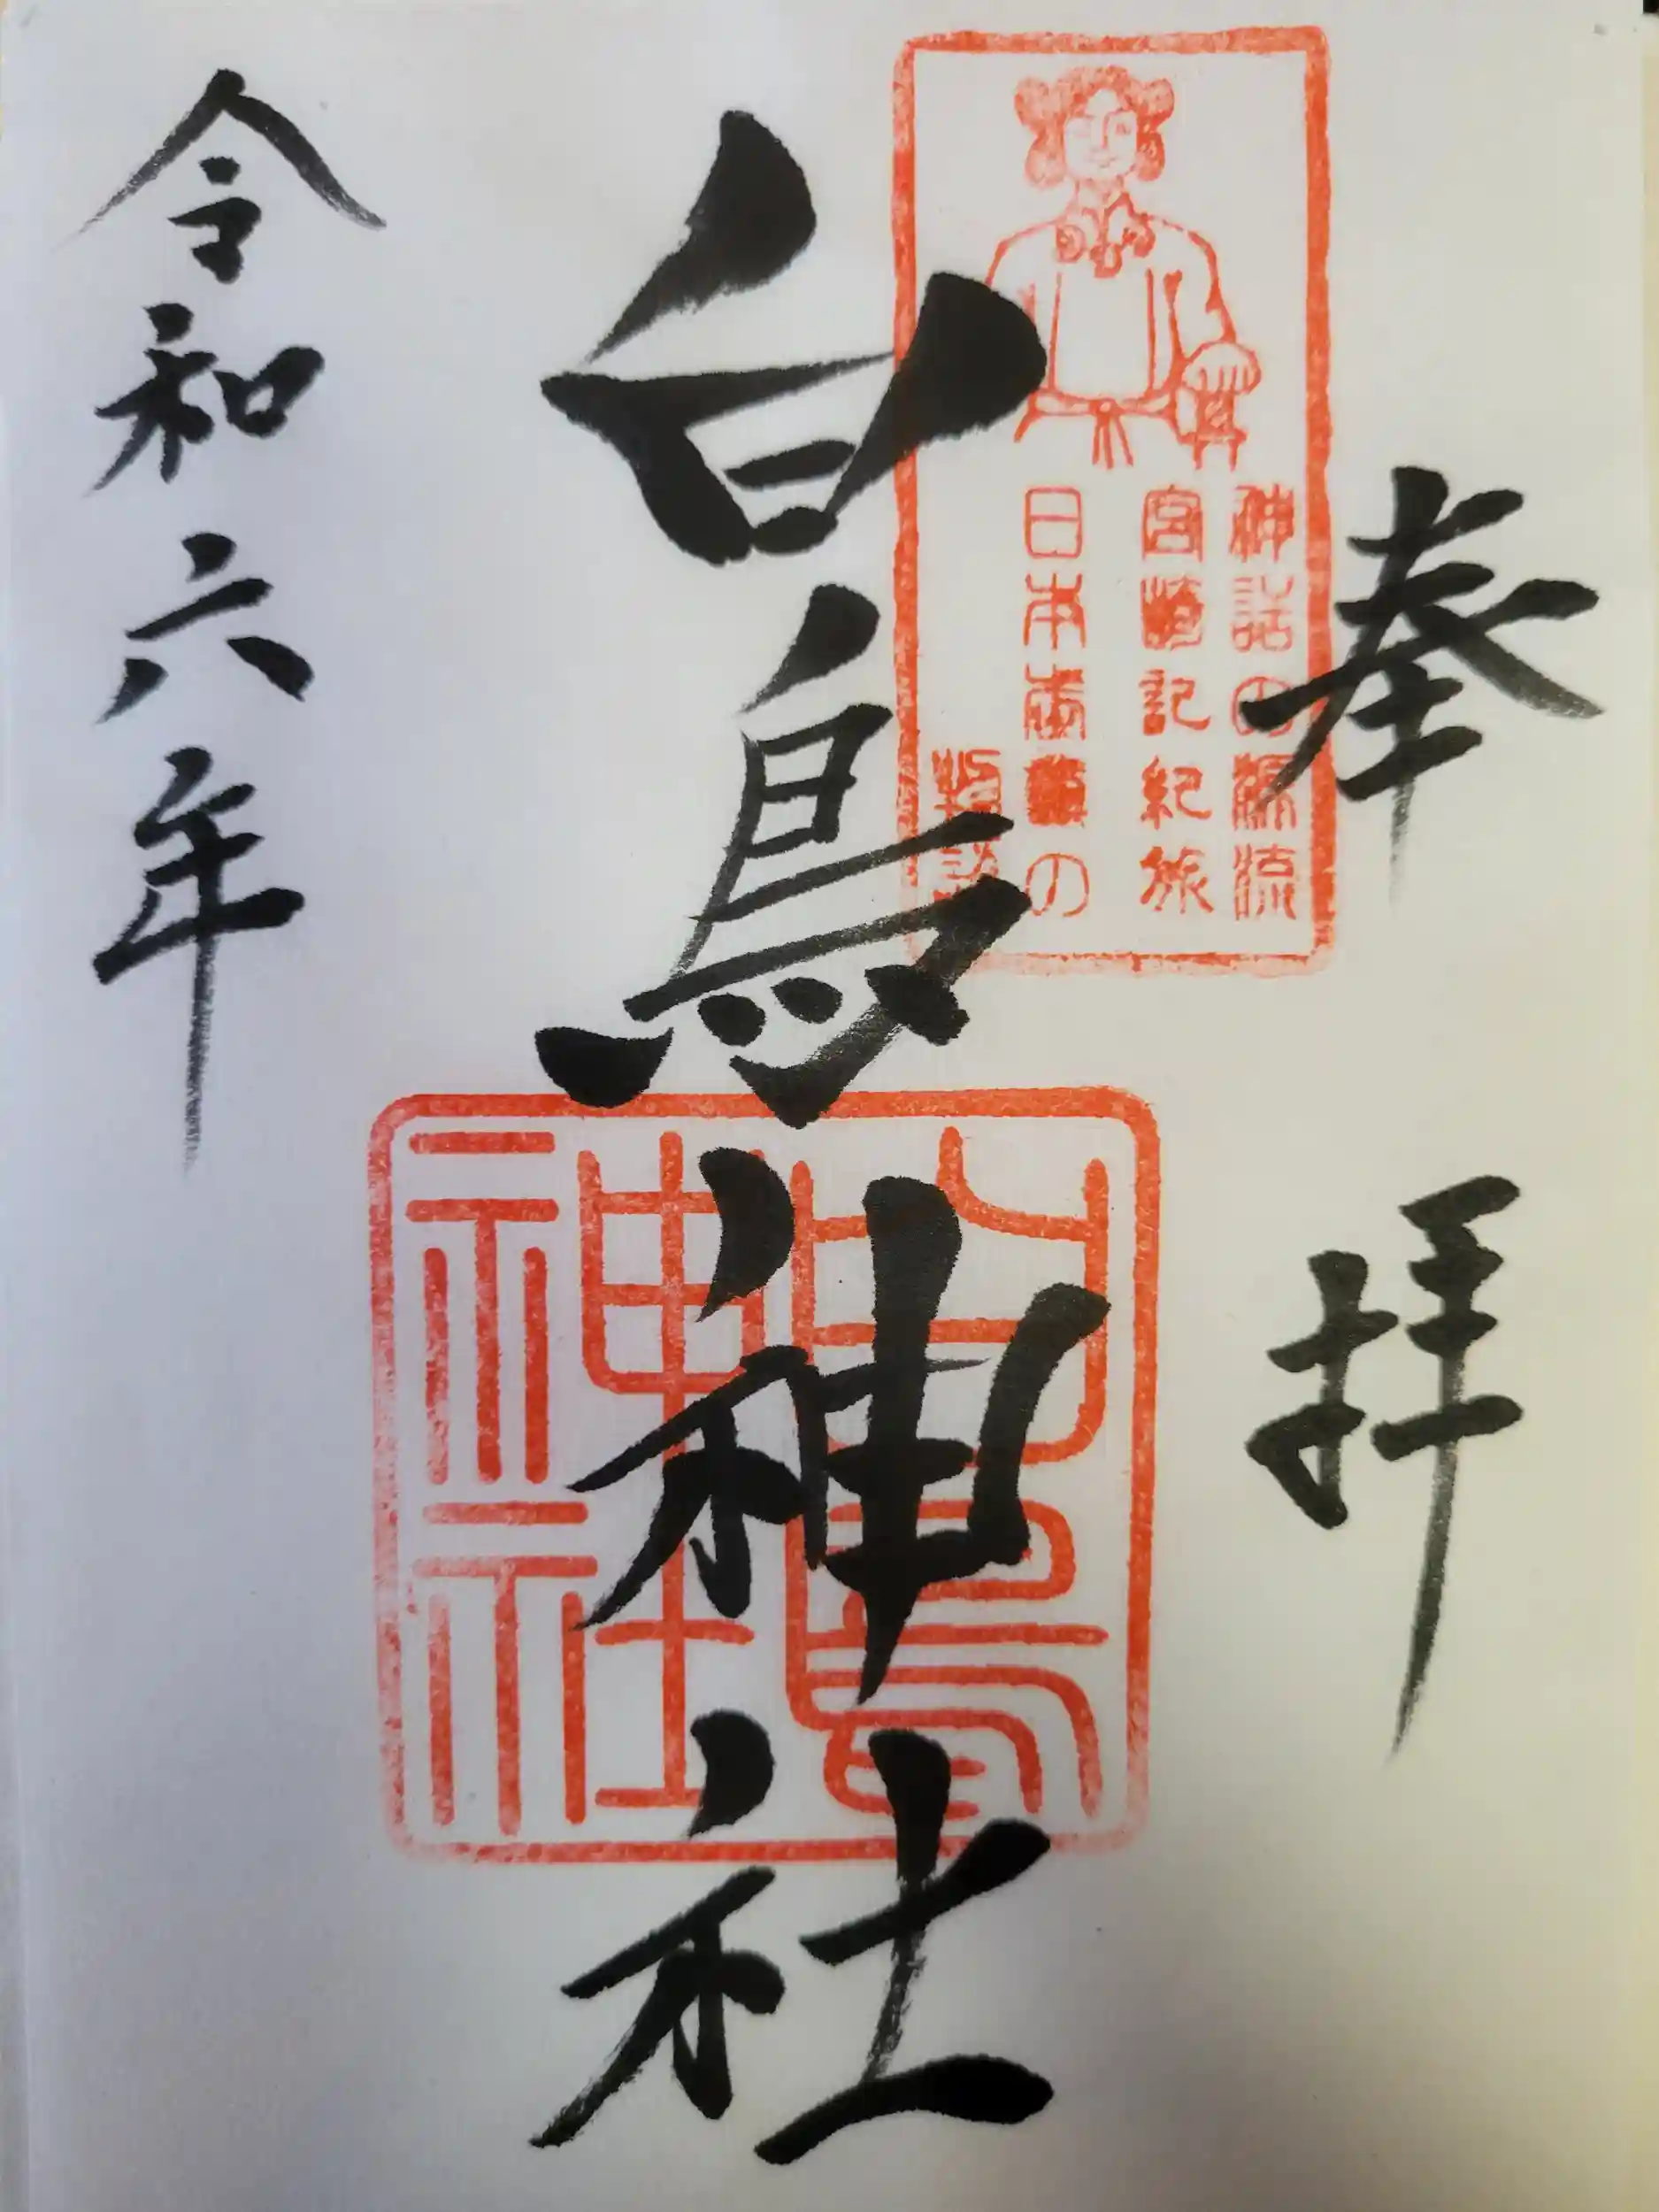 奉拝
神話の源流
宮崎記紀旅
日本
の
白鳥神社
白鳥
神社
令和六年